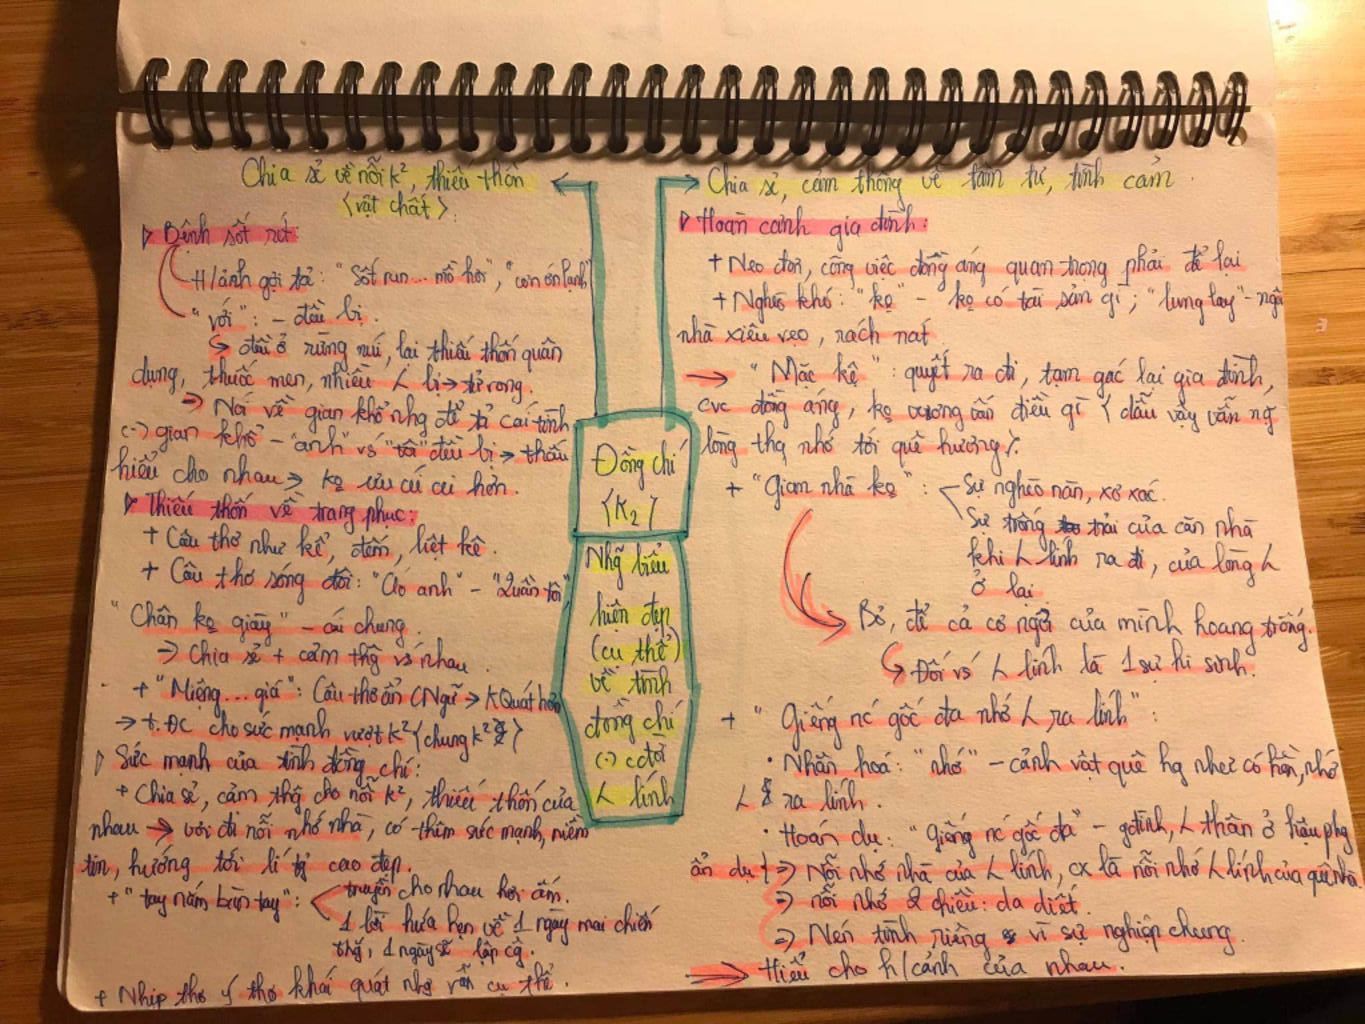 Chia sẻ về nỗi k², thiếu thốn
<vật chất>.
▷ Bệnh sốt rét:
H/ảnh gợi tả: "Sốt run... mồ hôi", "cơn ớn lạnh"
"với": - đều bị.
↳ đều ở rừng núi, lại thiếu thốn quân
dụng, thuốc men, nhiều L bị → tử vong.
⇒ Nói về gian khổ nhg để tả cái tình
(-) gian khổ - "anh" vs "tôi" đều bị → thấu
hiểu cho nhau → kọ cứ
▷ Thiếu thốn về trang phục:
+ Câu thơ như kể, đếm, liệt kê.
+ Câu thơ sóng đôi: "Áo anh" - "Quần tôi"
"Chân kọ giày" - cái chung.
⇒ Chia sẻ + cảm thg vs nhau.
+ "Miệng... giá": Câu thơ ẩn CNgữ → KQuát hơn
→ t. ĐC cho sức mạnh vượt k² {chung k²}
▷ Sức mạnh của tình đồng chí:
+ Chia sẻ, cảm thg cho nỗi k², thiếu thốn của
nhau → vơi đi nỗi nhớ nhà, có thêm sức mạnh, niềm
tin, hướng tới lí cao đẹp.
+ "tay nắm bàn tay":
truyền cho nhau hơi ấm.
1 lời hứa hẹn về 1 ngày mai chiến
thg, 1 ngày lập cg.
+ Nhịp thơ ý thơ khái quát nhg vẫn cụ thể.
Đồng chí
<K₂>
Nhg biểu
hiện đẹp
(cụ thể)
về tình
đồng chí
(-) cđời
L lính
Chia sẻ, cảm thông về tâm tư, tình cảm.
▷ Hoàn cảnh gia đình:
+ Neo đơn, công việc đồng áng quan trọng phải để lại
+ Nghèo khó: "kọ" - kọ có tài sản gì; "lung lay" - ngôi
nhà xiêu vẹo, rách nát.
→ "Mặc kệ": quyết ra đi, tạm gác lại gia đình,
cvc đồng áng, kọ vương vấn điều gì <dẫu vậy vẫn ng
lòng thg nhớ tới quê hương>.
+ "Gian nhà kọ":
Sự nghèo nàn, xơ xác.
Sự trống trải của căn nhà
khi L lính ra đi, của lòng L
ở lại
Bỏ, để cả cơ ngơi của mình hoang trống.
↳ Đối vs L lính là 1 sự hi sinh.
+ "Giếng nc gốc đa nhớ L ra lính":
· Nhân hoá: "nhớ" - cảnh vật quê hg như có hồn, nhớ
L ra lính.
· Hoán dụ: "Giếng nc gốc đa" - gđình, L thân ở hậu phg
ẩn dụ ⇒ Nỗi nhớ nhà của L lính, cx là nỗi nhớ L lính của quê nhà
⇒ nỗi nhớ 2 chiều: da diết.
⇒ Nén tình riêng vì sự nghiệp chung.
→ Hiểu cho h/cảnh của nhau.